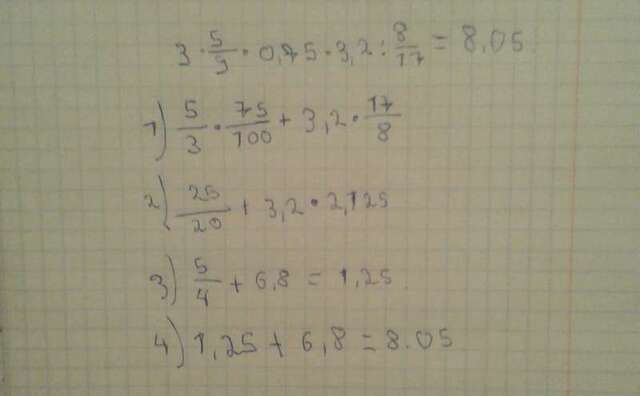 3 · 5/3 · 0,75 · 3,2 : 8/17 = 8,05
1) 5/3 · 75/100 + 3,2 · 17/8
2) 25/20 + 3,2 · 2,125
3) 5/4 + 6,8 = 1,25.
4) 1,25 + 6,8 = 8.05